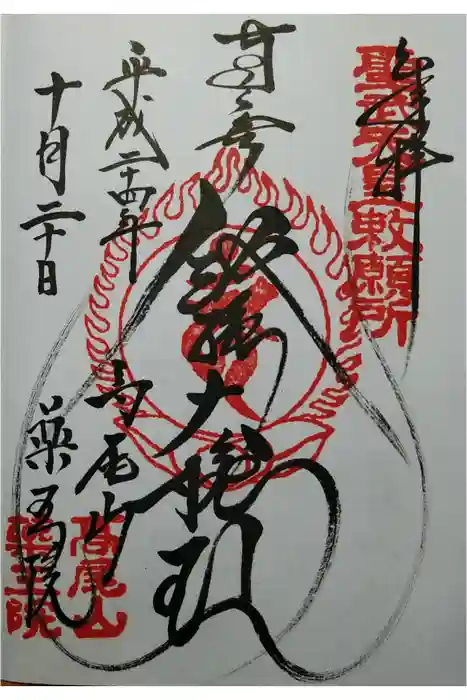 奉拝
聖武天皇勅願所
飯縄大権現
平成二十四年
十月二十日
高尾山
薬王院
高尾山
薬王院